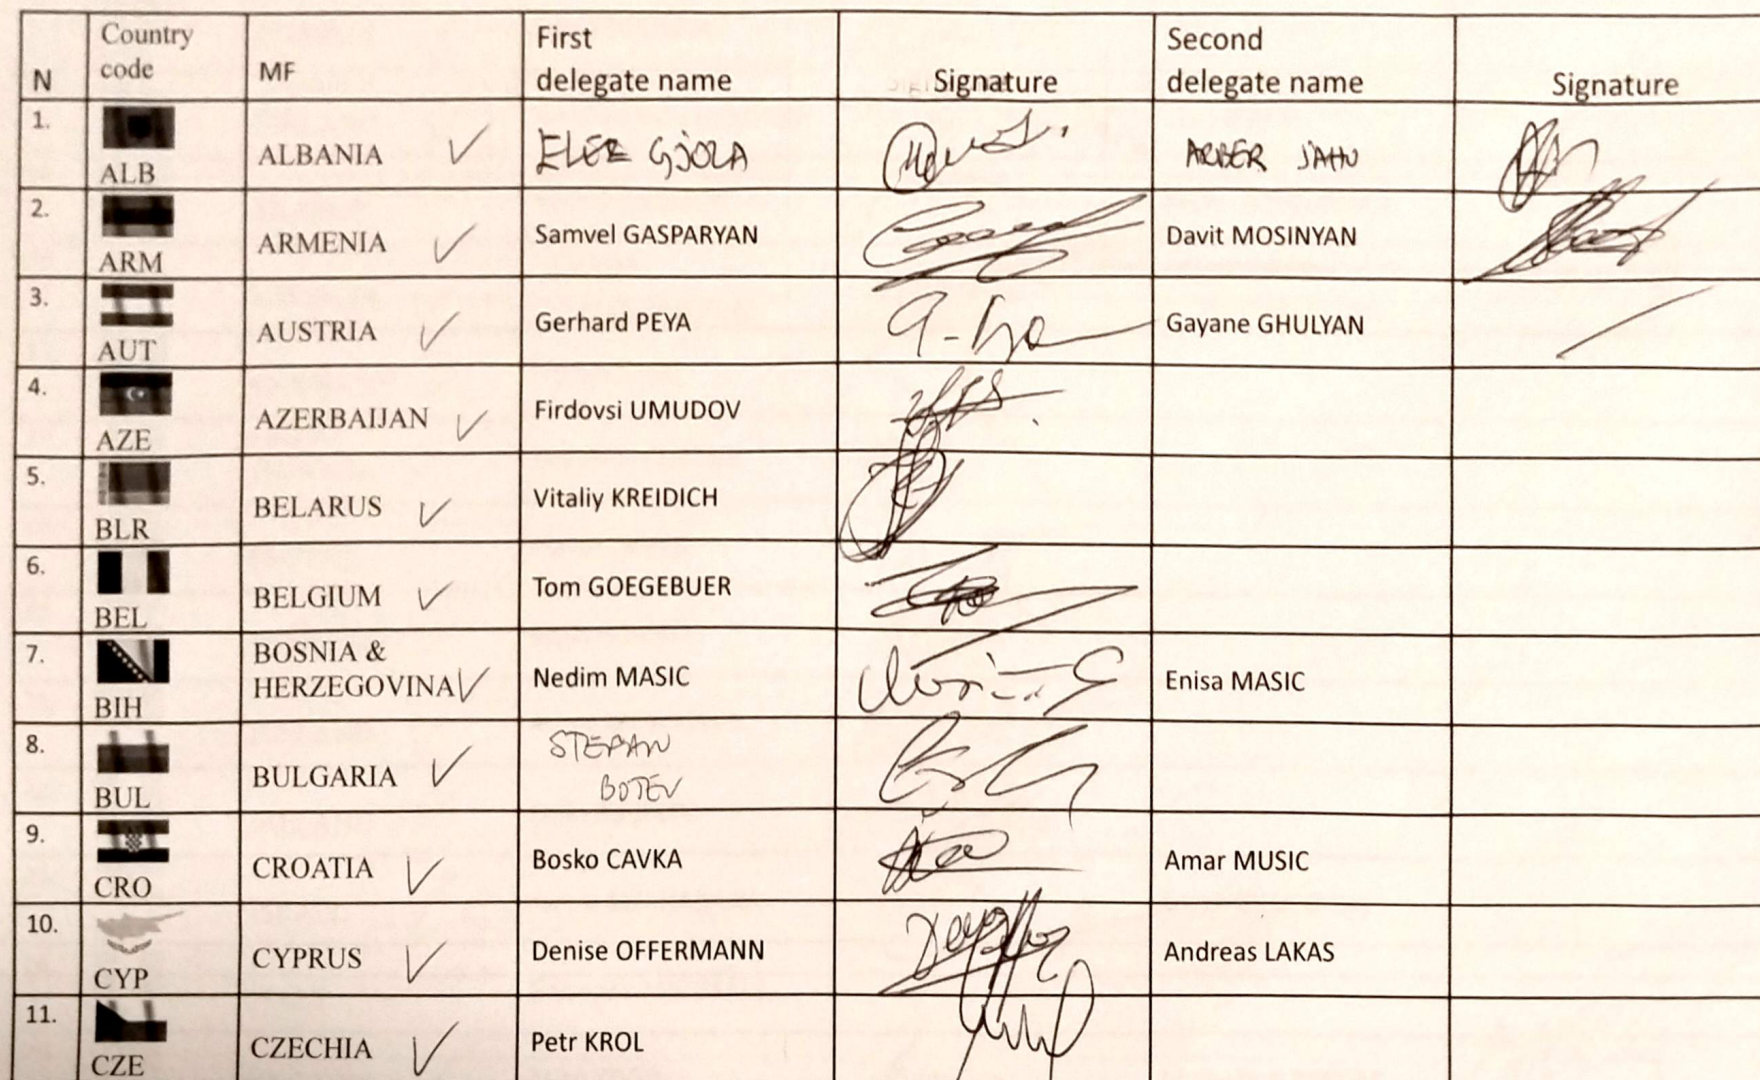 N Country code MF First delegate name Signature Second delegate name Signature
1. ALB ALBANIA ✓ GJOLA ARBER
2. ARM ARMENIA ✓ Samvel GASPARYAN Davit MOSINYAN
3. AUT AUSTRIA ✓ Gerhard PEYA Gayane GHULYAN
4. AZE AZERBAIJAN ✓ Firdovsi UMUDOV
5. BLR BELARUS ✓ Vitaliy KREIDICH
6. BEL BELGIUM ✓ Tom GOEGEBUER
7. BIH BOSNIA & HERZEGOVINA ✓ Nedim MASIC Enisa MASIC
8. BUL BULGARIA ✓ STEFAN BOTEV
9. CRO CROATIA ✓ Bosko CAVKA Amar MUSIC
10. CYP CYPRUS ✓ Denise OFFERMANN Andreas LAKAS
11. CZE CZECHIA ✓ Petr KROL